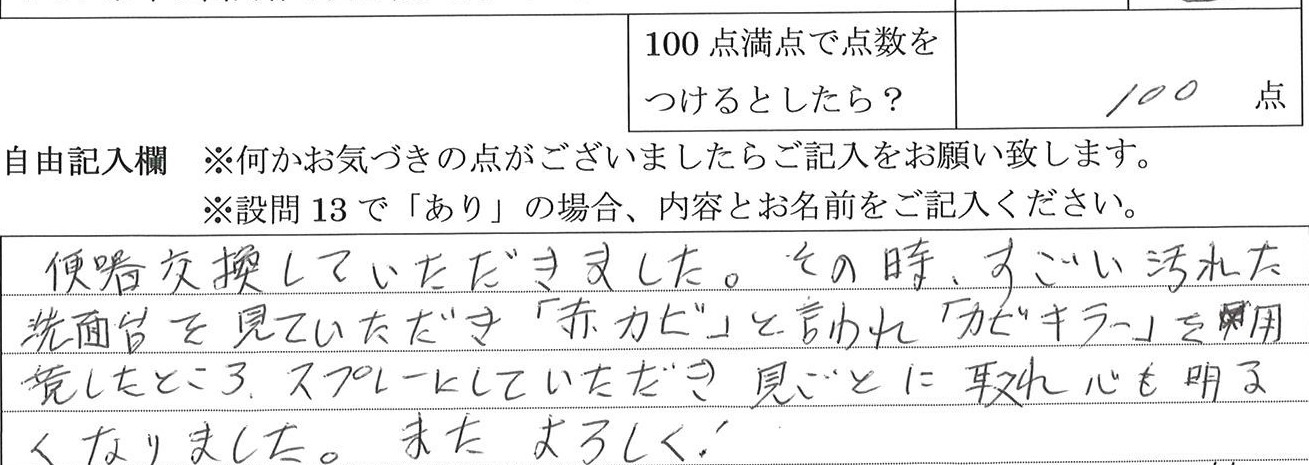 100点満点で点数を
つけるとしたら？
100 点
自由記入欄 ※何かお気づきの点がございましたらご記入をお願い致します。
※設問13で「あり」の場合、内容とお名前をご記入ください。
便器交換していただきました。その時、すごい汚れた
洗面台を見ていただき「赤カビ」と言われ「カビキラー」を用
意したところ、スプレーにしていただき見ごとに取れ心も明る
くなりました。またよろしく！